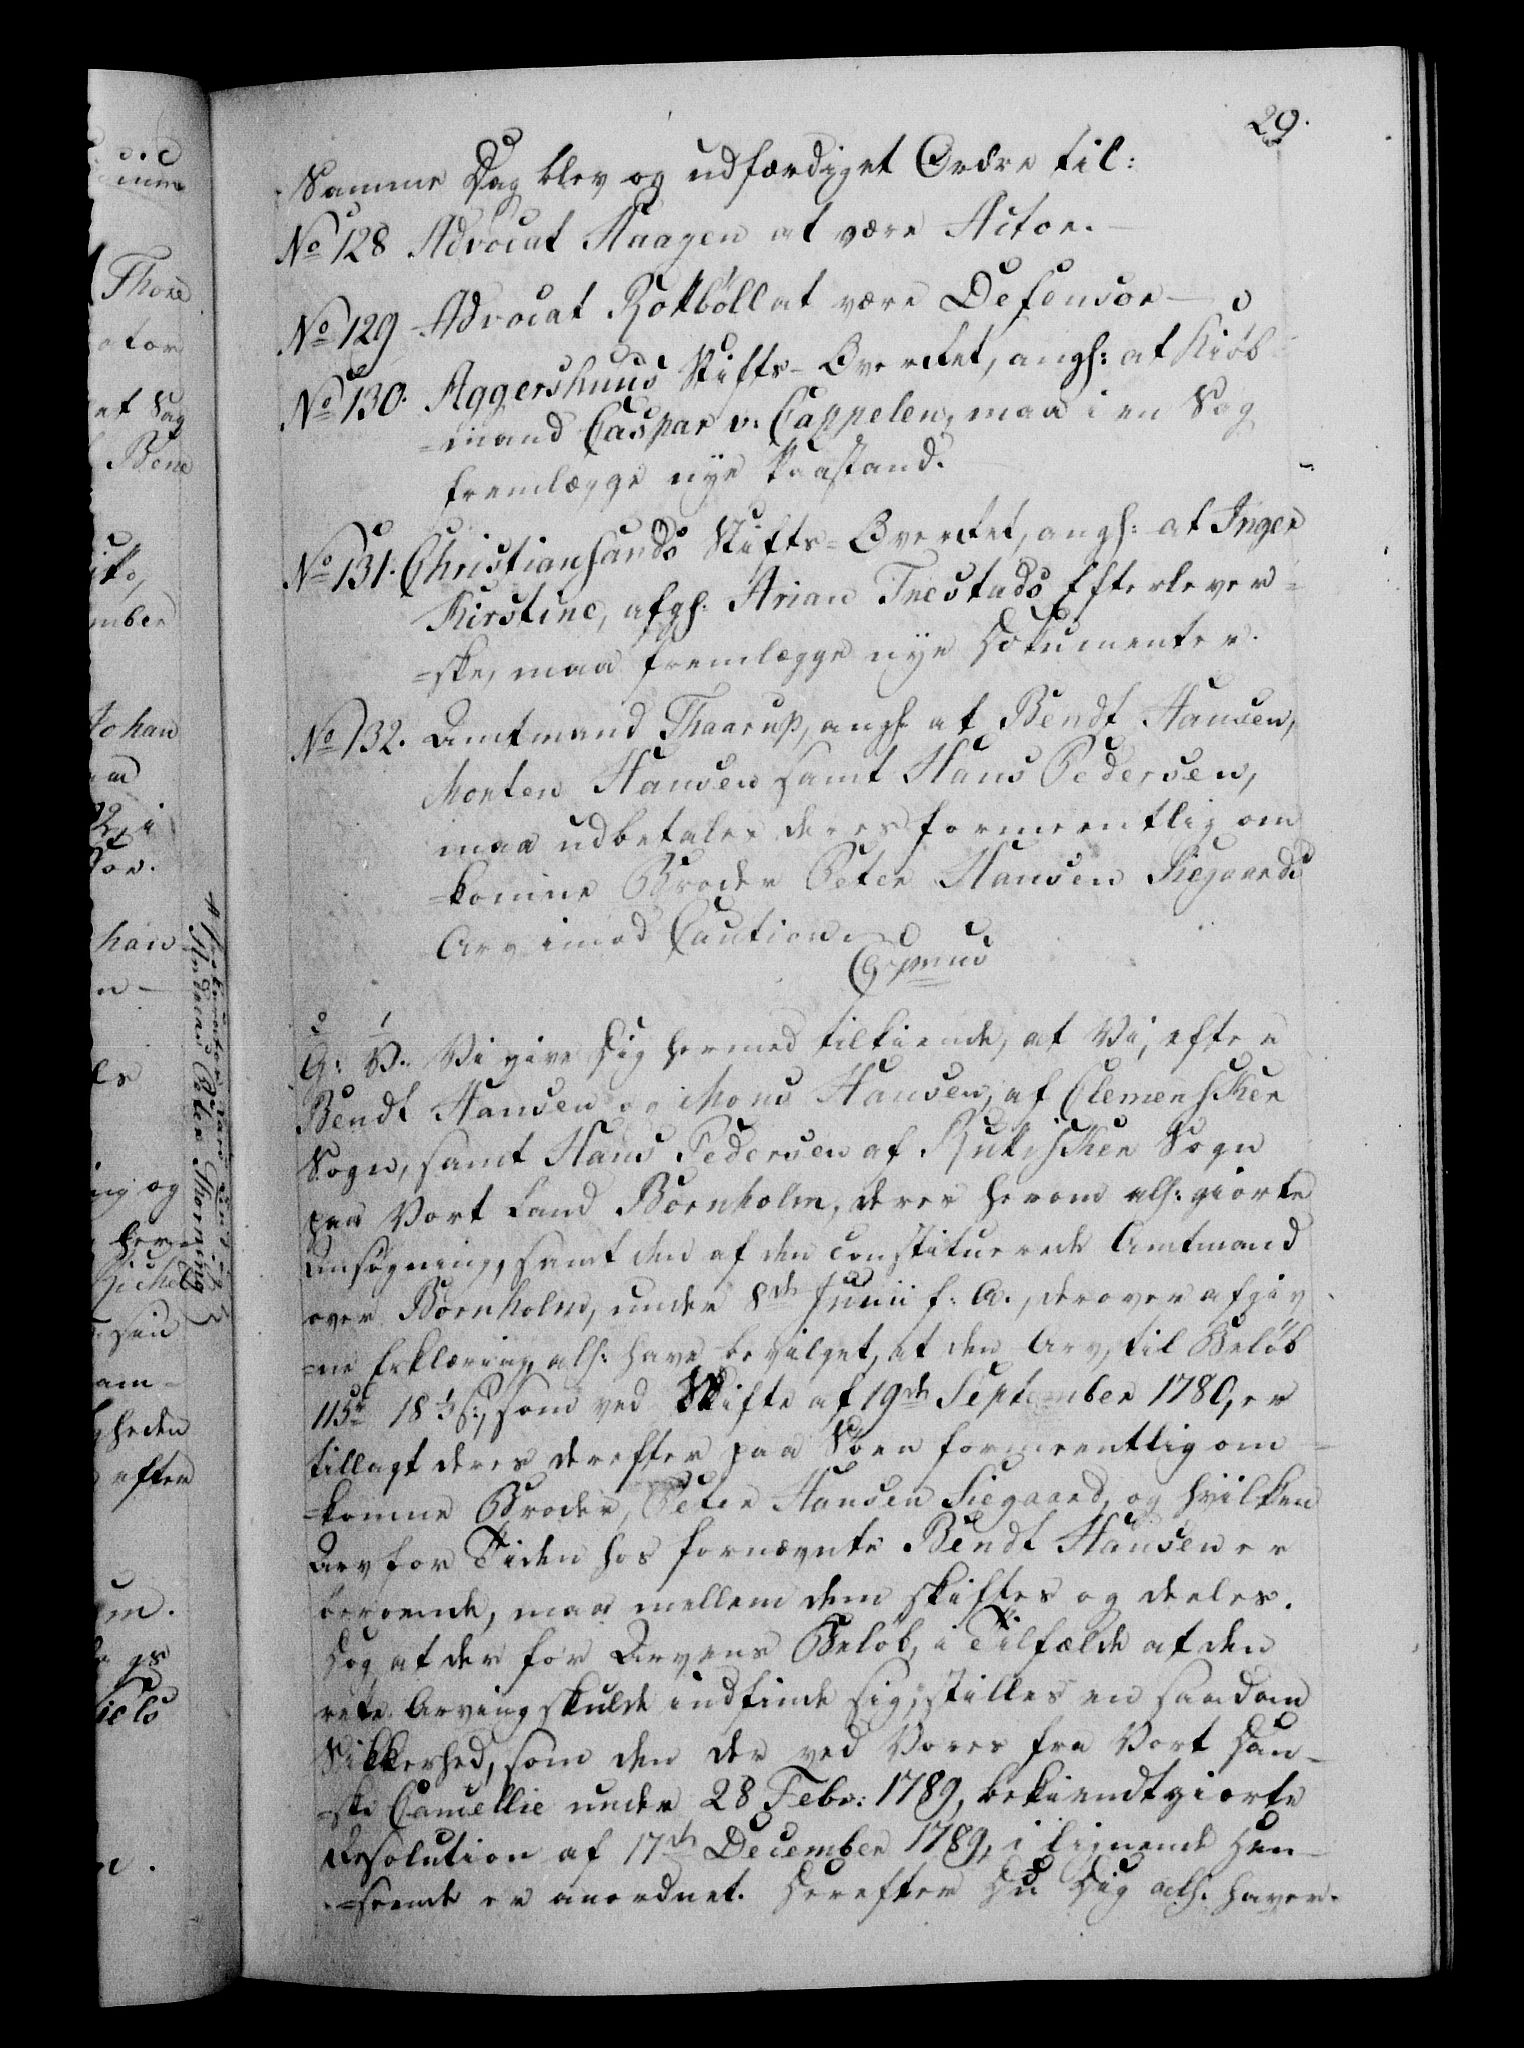 29.
Samme Dag blev og udfærdiget Ordre til:
No 128 Advocat Haagen at være Actor.
No 129 Advocat Rotbøll at være Defensor
No 130. Aggershuus Stifts-Overrtet, angl: at Kiøb
=mand Caspar v: Cappelen, maa i en Sag
fremlægge nye Paastand.
No 131. Christiansands Stifts-Overrtet, angl: at Inger
Kirstine, afgl: Arian Trestads Efterlever=
=ske, maa fremlægge nye Documenter.
No 132. Amtmand Thaarup, angl: at Bendt Hansen,
Morten Hansen samt Hans Pedersen,
maa udbetales deres formeentlig om
=komne Broder Peter Hansen Siegaards
Arv imod Caution.
Gr: V: Vi give Dig hermed tilkiende, at Vi, efter
Bendt Hansen og Mons Hansen, af Clemenscher
Sogn, samt Hans Pedersen af Rutscher Sogn
paa Vort Land Bornholm, deres herom all: giorte
Ansøgning, samt den af den constituerede Amtmand
over Bornholm, under 8de Junii f: A:, derover afgiv
=ne Erklæring, all: have bevilget, at den Arv, til Beløb
115 rd 18 ½ s:, som ved Skifte af 19de September 1780, er
tillagt deres derefter paa Søen formeentlig om=
=komne Broder, Peter Hansen Siegaard, og hvilken
Arv for Tiden hos fornævnte Bendt Hansen er
beroende, maa mellem dem skiftes og deeles.
Dog at der for Arvens Beløb, i Tilfælde at den
rette Arving skulde indfinde sig, stilles en saadan
Sikkerhed, som den der ved Vores fra Vort Dan=
=ske Cancellie under 28 Febr: 1789, bekiendtgiorte
Resolution af 17de December 1789, i lignende Hen=
=seende er anordnet. Derefter Du Dig all: haver.